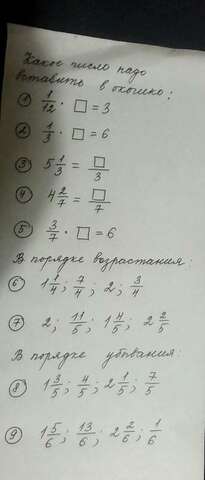 Какое число надо
вставить в окошко:
① 1/12 · □ = 3
② 1/3 · □ = 6
③ 5 1/3 = □/3
④ 4 2/7 = □/7
⑤ 3/7 · □ = 6
В порядке возрастания:
⑥ 1 1/4; 7/4; 2; 3/4
⑦ 2; 11/5; 1 4/5; 2 2/5
В порядке убывания:
⑧ 1 3/5; 4/5; 2 1/5; 7/5
⑨ 1 5/6; 13/6; 2 2/6; 1/6